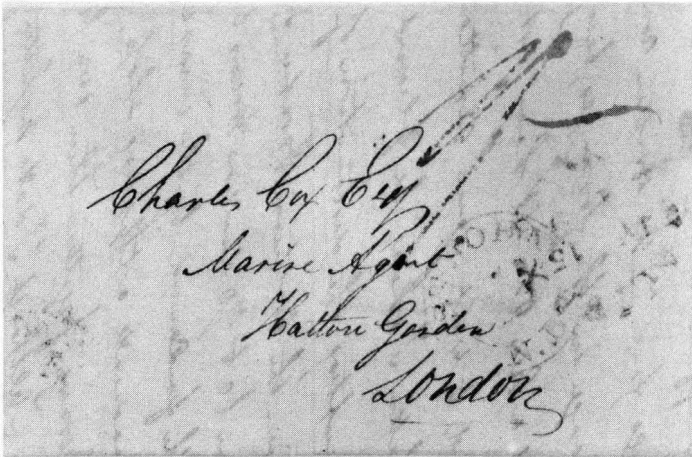 Charles Cox Esq
Marine Agent
Hatton Garden
London